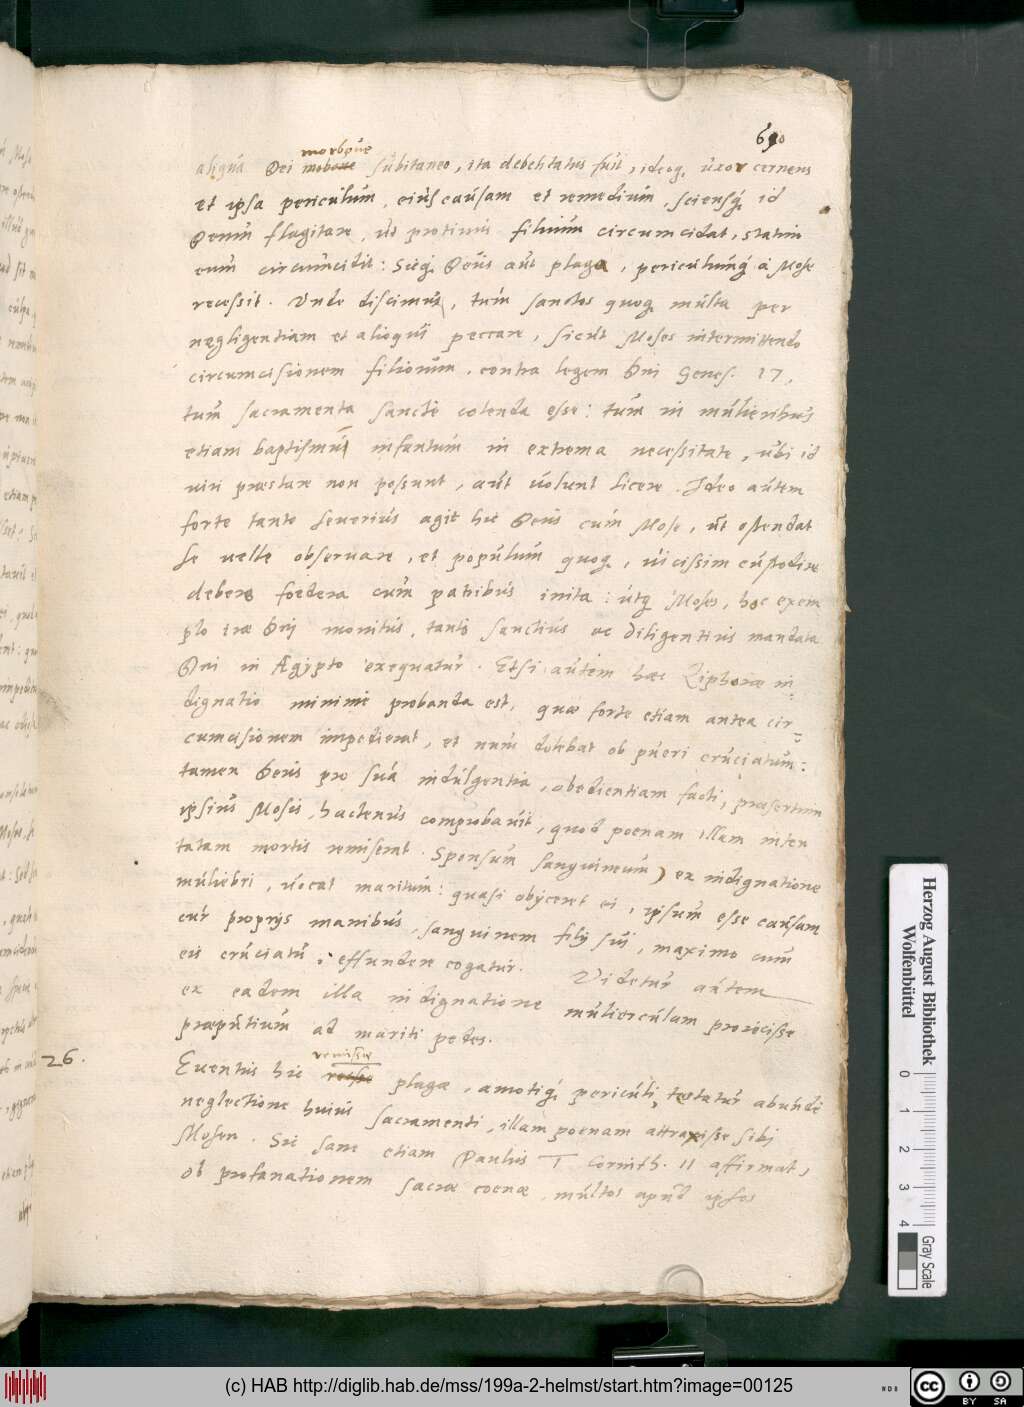 690
morbóue
aliqúa Dei subitaneo, ita debelitatus fuit, ideoq, úxor cernens
et ipsa periculúm, eiús causam et remedium, sciensq́ id
Deum flagitare, út protinús filiúm circumcidat, statim
eum circumcidit: Sicq́ Deús aút plaga, periculúmq́ à Mose
recessit. Vnde discimus, túm sanctos quoq múlta per
negligentiam et alioqúi peccare, sicút Moses intermittendo
circumcisionem filiorúm, contra legem Dni Genes. 17,
túm sacramenta sanctè colenda esse: túm in múlieribús
etiam baptismú infantúm in extrema necessitate, úbi id
viri præstare non possunt, aút uolunt licere. Ideo aútem
forte tanto seuerius agit hic Deús cúm Mose, út ostendat
se uelle obseruare, et populúm quoq, uicissim cústodire
debere foedera cúm patribús inita: útq Moses, hoc exem
plo iræ Dei monitús, tanto sanctiús ac diligentiús mandata
Dni in Ægypto exequatúr. Etsi aútem hæc Ziphoræ in
dignatio minime probanda est, quæ forte etiam antea cir
cumcisionem impedierat, et nunc dolebat ob púeri crúciatúm:
tamen Deús pro súa indúlgentia, obedientiam facti, præsertim
ipsiús Mosis, hactenús comprobauit, quod poenam illam inten
tatam mortis remiserat. Sponsúm sanguineúm) ex indignatione
múliebri, uocat maritúm: quasi obijceret ei, ipsúm esse caúsam
cúr proprijs manibús, sanguinem filij súi, maximo cum
eiús crúciatú, effundere cogatúr. Videtúr aútem
ex eadem illa indignatione múlierculam proiecisse
præpútium ad mariti pedes.
26.
remissæ
Euentús hic plagæ, amotiq́ perículi, testatúr abúnde
neglectione huiús sacramenti, illam poenam attraxisse sibi
Mosen. Sic sane etiam Paulús I Corinth. 11 affirmat,
ob profanationem sacræ coenæ, múltos apúd ipsos
Herzog August Bibliothek
Wolfenbüttel
0 1 2 3 4
Gray Scale
(c) HAB http://diglib.hab.de/mss/199a-2-helmst/start.htm?image=00125
cc BY SA